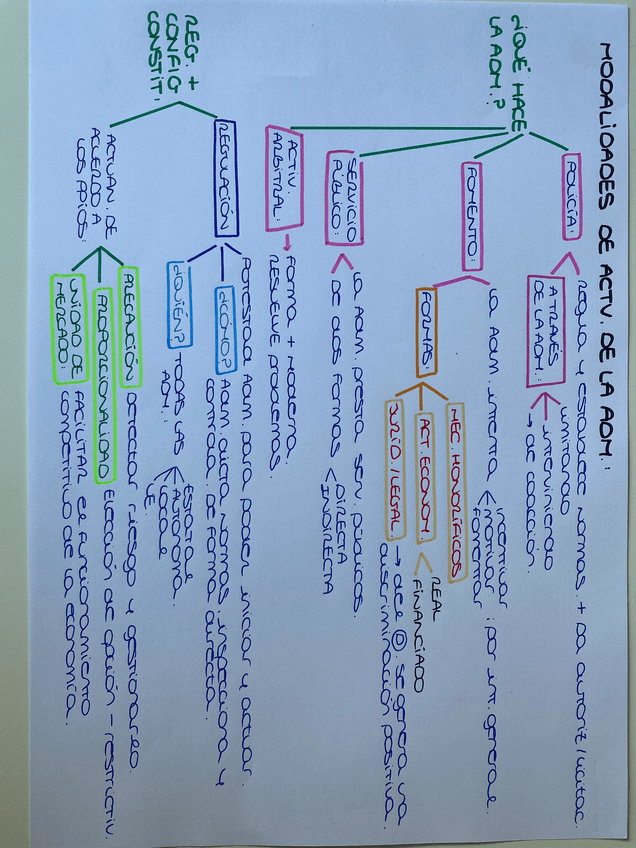 MODALIDADES DE ACTV. DE LA ADM.:
¿QUÉ HACE
LA ADM.?
POLICÍA:
Regula y establece normas. + Da autoriz/licitac.
A TRAVÉS
DE LA ADM.:
limitando
interviniendo
→ de coacción.
FOMENTO:
La Adm. intenta
incentivar
motivar
fomentar
; por int. general.
FORMAS:
MEC. HONORÍFICOS
ACT. ECONOM.
REAL
FINANCIADO
JURID./LEGAL.
→ del ⓪. Se genera la
discriminación positiva.
SERVICIO
PÚBLICO:
La Adm. presta serv. públicos.
De dos formas
DIRECTA
INDIRECTA
ACTIV.
ARBITRAL:
Forma + moderna.
Resuelve problemas.
REG. +
CONFIG
CONSTIT:
REGULACIÓN
Potestad Adm. para poder iniciar y actuar.
¿CÓMO?
Adm. dicta normas, inspecciona y
controla de forma directa.
¿QUIÉN?
TODAS LAS
ADM.:
ESTATAL
AUTONOM.
LOCAL
E.
ACTUAN. DE
ACUERDO A
LOS PPIOS:
PRECAUCIÓN
Detectar riesgo y gestionarlo.
PROPORCIONALIDAD
Elección de opción - restrictiv.
UNIDAD DE
MERCADO:
Facilitar el funcionamiento
competitivo de la economía.